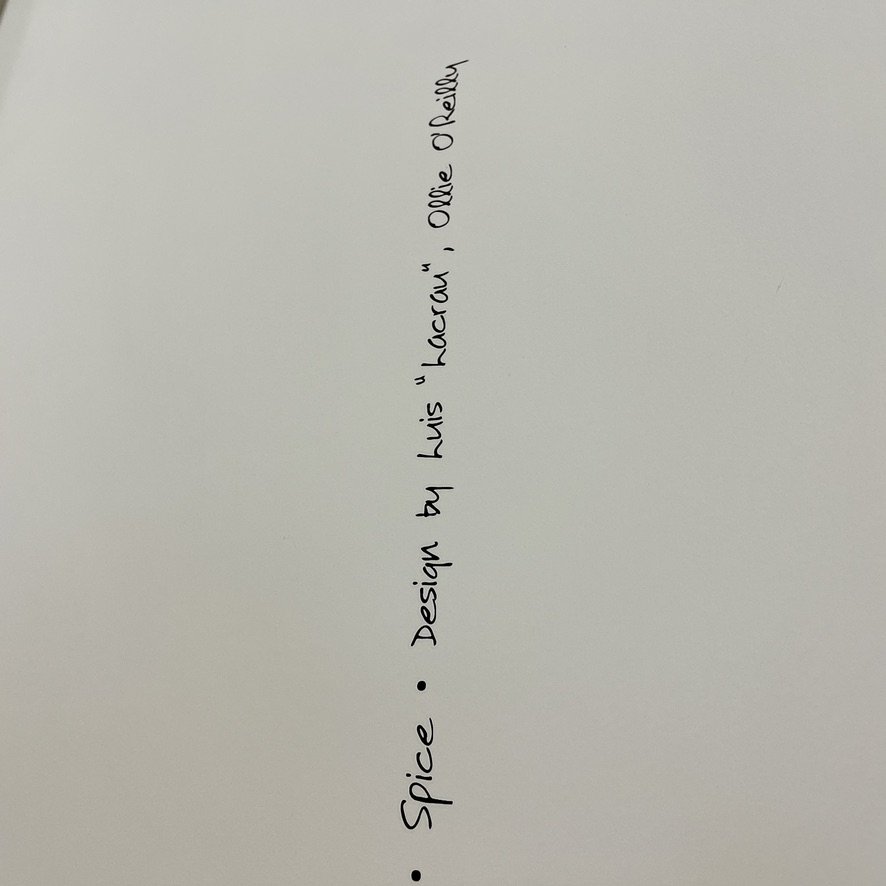 • Spice • Design by Luis "Lacrau", Ollie O'Reilly